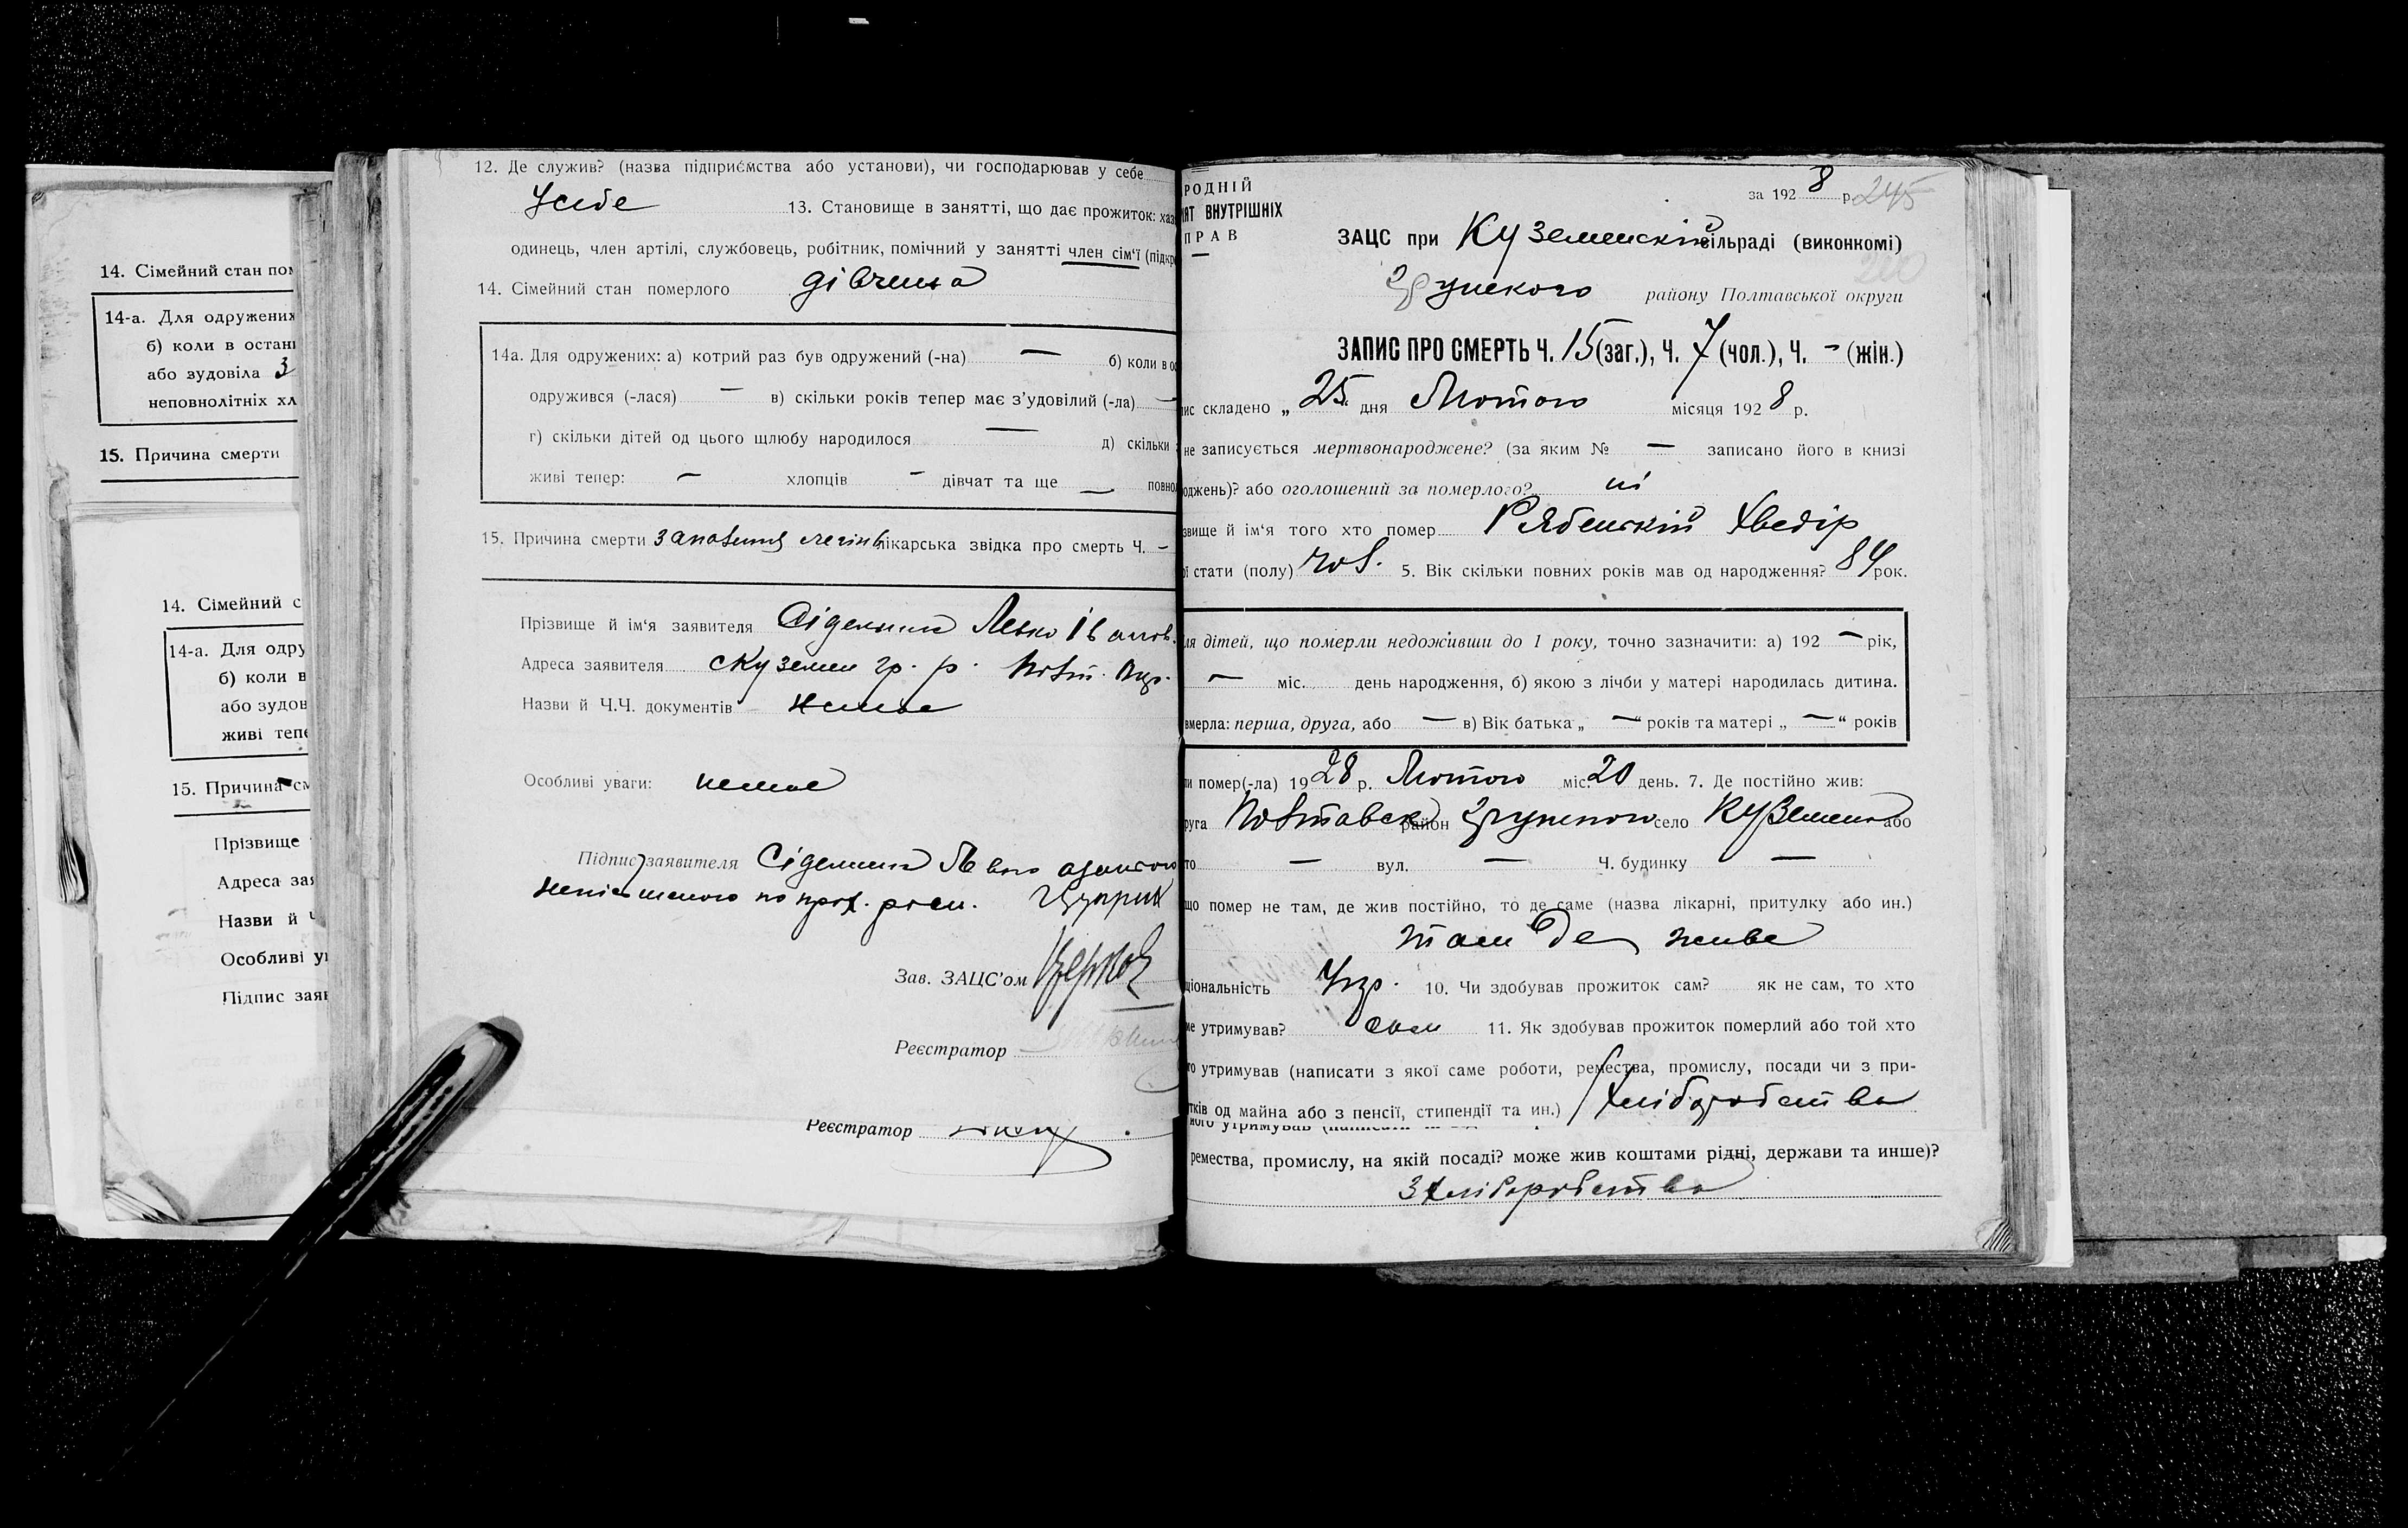 14. Сімейний стан пом
14-а. Для одружених
б) коли в останн
або зудовіла 3
неповнолітніх хл
15. Причина смерти
14. Сімейний с
14-а. Для одру
б) коли в
або зудов
живі тепе
15. Причина см
Прізвище
Адреса зая
Назви й Ч
Особливі ув
Підпис заяв
12. Де служив? (назва підприємства або установи), чи господарював у себе
Усебе 13. Становище в занятті, що дає прожиток: хаз
одинець, член артілі, службовець, робітник, помічний у занятті член сім'ї (підкр
14. Сімейний стан померлого дівчина
14а. Для одружених: а) котрий раз був одружений (-на) — б) коли в ос
одружився (-лася) — в) скільки років тепер має з'удовілий (-ла) —
г) скільки дітей од цього щлюбу народилося — д) скільки з
живі тепер: — хлопців — дівчат та ще — повнол
15. Причина смерти запалення легінь лікарська звідка про смерть Ч. —
Прізвище й ім'я заявителя Леько Іванов.
Адреса заявителя с Куземен гр. р. Полт. окр.
Назви й Ч.Ч. документів немає
Особливі уваги: немає
Підпис заявителя
неписьменого по прох. росп.
Зав. ЗАЦС'ом
Реєстратор
Реєстратор
РОДНІЙ
ЯТ ВНУТРІШНІХ
ПРАВ
за 1928 р. 245
ЗАЦС при Куземенскій сільраді (виконкомі)
Грунского району Полтавської округи
ЗАПИС ПРО СМЕРТЬ Ч. 15 (заг.), Ч. 7 (чол.), Ч. - (жін.)
пис складено „25“ дня Лютого місяця 1928 р.
не записується мертвонароджене? (за яким № — записано його в книзі
оджень)? або оголошений за померлого? ні
звище й ім'я того хто помер Рябенскій Хведір
ої стати (полу) чол. 5. Вік скільки повних років мав од народження? 84 рок.
ля дітей, що померли недоживши до 1 року, точно зазначити: а) 192 — рік,
— міс. день народження, б) якою з лічби у матері народилась дитина.
вмерла: перша, друга, або — в) Вік батька „ —“ років та матері „ —“ років
ли помер(-ла) 1928 р. Лютого міс. 20 день. 7. Де постійно жив:
руга Полтавск район Грунского село Куземени або
то — вул. — Ч. будинку —
що помер не там, де жив постійно, то де саме (назва лікарні, притулку або ин.)
там де живе
ціональність Укр. 10. Чи здобував прожиток сам? як не сам, то хто
ме утримував? сам 11. Як здобував прожиток померлий або той хто
го утримував (написати з якої саме роботи, ремества, промислу, посади чи з при-
тків од майна або з пенсії, стипендії та ин.) Хліборобства
ремества, промислу, на якій посаді? може жив коштами рідні, держави та инше)?
З хліборобства